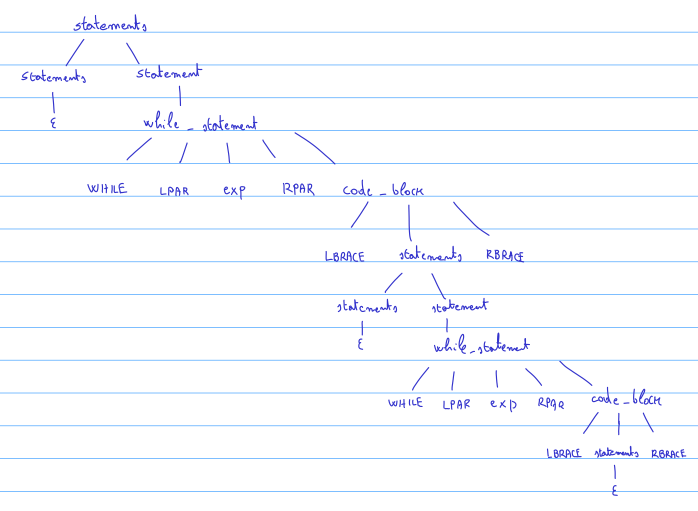 statements
statements statement
ε while_statement
WHILE LPAR exp RPAR code_block
LBRACE statements RBRACE
statements statement
ε while_statement
WHILE LPAR exp RPAR code_block
LBRACE statements RBRACE
ε